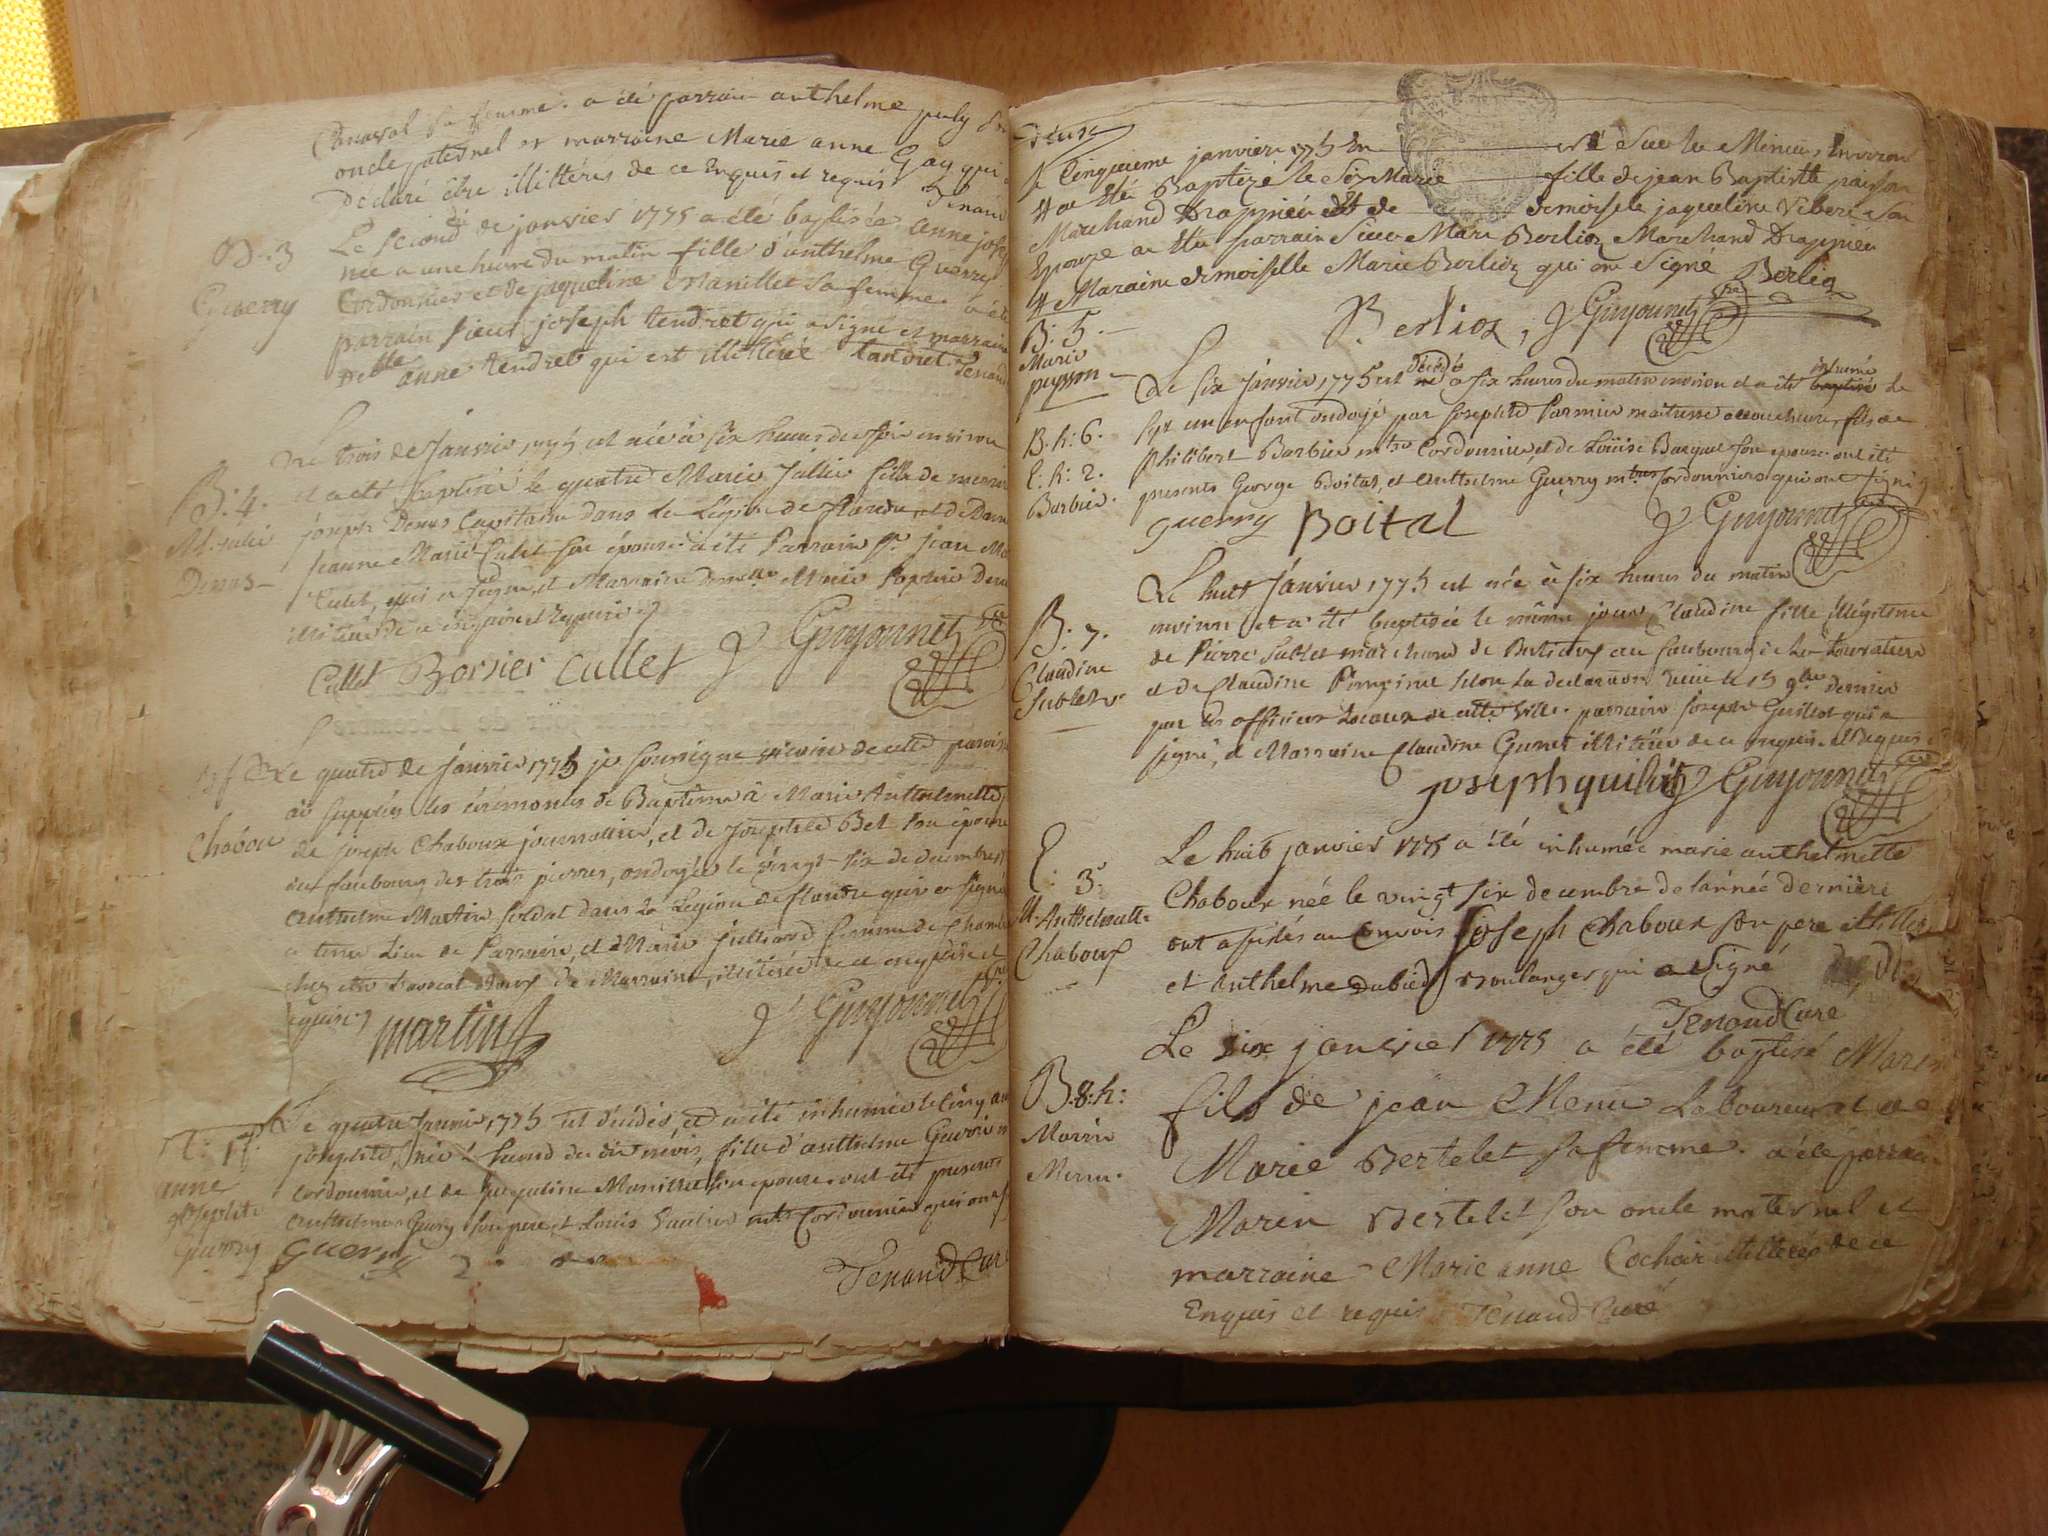 sa femme. a été parrain anthelme puly son
oncle paternel et marraine Marie anne Gay qui
déclaré être illitérés de ce Enquis et requis Tenand
B: 3
Guerry
Le second de janvier 1775 a été baptisée anne josep
née a une heure du matin fille d'anthelme Guerry
Cordonnier et de jaqueline Manillet sa femme. a été
parrain sieur joseph tendret qui a signé et marraine
delle anne tendret qui est illitérée tandret Tenand
B: 4.
M. julie
Denus
Le trois de Janvier 1775 est née à six heures du soir environ
et a été baptisée le quatre Marie Jullie fille de messire
joseph Denus Capitaine dans la Légion de flandre, et de Dame
jeanne Marie Cullet son épouse a été Parrain Sr. jean Me
Cullet, qui a signé, et Marraine demelle Marie Sophie Denu
illitérée de ce enquise et requise
Cullet Borsier Cullet J Guyonnet
Chabou
Le quatre de Janvier 1775 je soussigné vicaire de cette paroisse
ai supplées les cérémonies de Baptême à Marie Anthelmette
de joseph Chaboux journalier, et de josephte Bel son épouse
du faubourg des trois pierres, ondoyée le vingt-six de decembre
anthelme Martin soldat dans la Légion de flandre qui a signé
a tenu Lieu de Parrain, et Marie julliard femme de
chez l'avocat de Marraine, illitérée de ce enquise et
requise
martin J Guyonnet
E: 1r.
anne
josephte
Guerry
Le quatre Janvier 1775 est décédée, et a été inhumée le cinq anne
josephte, née à heure du dix névis, fille d'anthelme Guerry me
cordonnier, et de jaqueline Manillet son épouse ont été présents
anthelme Guerry son père, et Louis Gautier mtre Cordonnier qui ont s
guerry
Tenand Curé
deux
le Cinquieme janvier 1775 En né Sur la Minuit Environ
a été Baptizé le Six Marie fille de jean Baptiste paisson
Marchand Drappier et de demoiselle jaqueline Vibert son
Epouze a été parrain Sieur Marc Berlioz Marchand Drappier
et Maraine demoiselle Marie Berlioz qui on signé Berlioz
Berlioz, J Guyonnet
B: 5.
Marie
peysson
B. h: 6.
E. h: 2.
Barbier.
Le six Janvier 1775 est décédé né a six heures du matin environ et a été inhumé baptisé le
sept un enfant ondoyé par josephte Parmier maitresse accoucheuse, fils de
philibert Barbier mtre Cordonnier et de Louise Bargat son épouse ont été
presents George Boital, et Anthelme Guerry mtres Cordonniers qui ont signé
guerry Boital J Guyonnet
B: 7.
Claudine
Sublet
Le huit Janvier 1775 est née à six heures du matin
environ et a été baptisée le même jour, Claudine fille illégitime
de Pierre Sublet marchand de au faubourg de la
et de Claudine selon la déclaration reçue le 15 9bre dernier
par les officiers Locaux de cette ville. parrain joseph Guillot qui a
signé, et Marraine Claudine Gunet illitérée de ce enquise et requise
joseph guillot J Guyonnet
E: 3.
M. Anthelmette
Chaboux
Le huit janvier 1775 a été inhumée marie anthelmette
Chaboux née le vingt six decembre de l'année dernière
ont assistés au convois joseph Chaboux son pere illitéré
et anthelme dubied Boulanger qui a signé
Tenand Curé
B. 8. h:
Marin
Menu.
Le six janvier 1775 a été baptisé Marin
fils de jean Menu Laboureur et de
Marie Bertelet sa femme. a été parrain
Marin Bertelet son oncle maternel et
marraine Marie anne Cochair illiterés de ce
Enquis et requis Tenand Curé